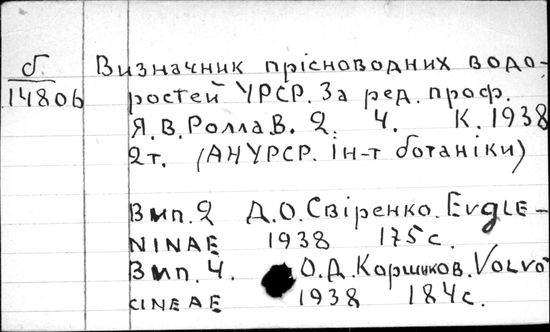 б.
14806
Визначник прісноводних водо-
ростей УРСР. За ред. проф.
Я.В. Ролла В. 2. 4. К. 1938
2т. (АН УРСР. Ін-т ботаніки)
Вип. 2 Д.О. Свіренко. EUGLE-
NINAE 1938 175 с.
Вип. 4. О.Д. Коршиков. VOLVO
CINEAE 1938 184 с.